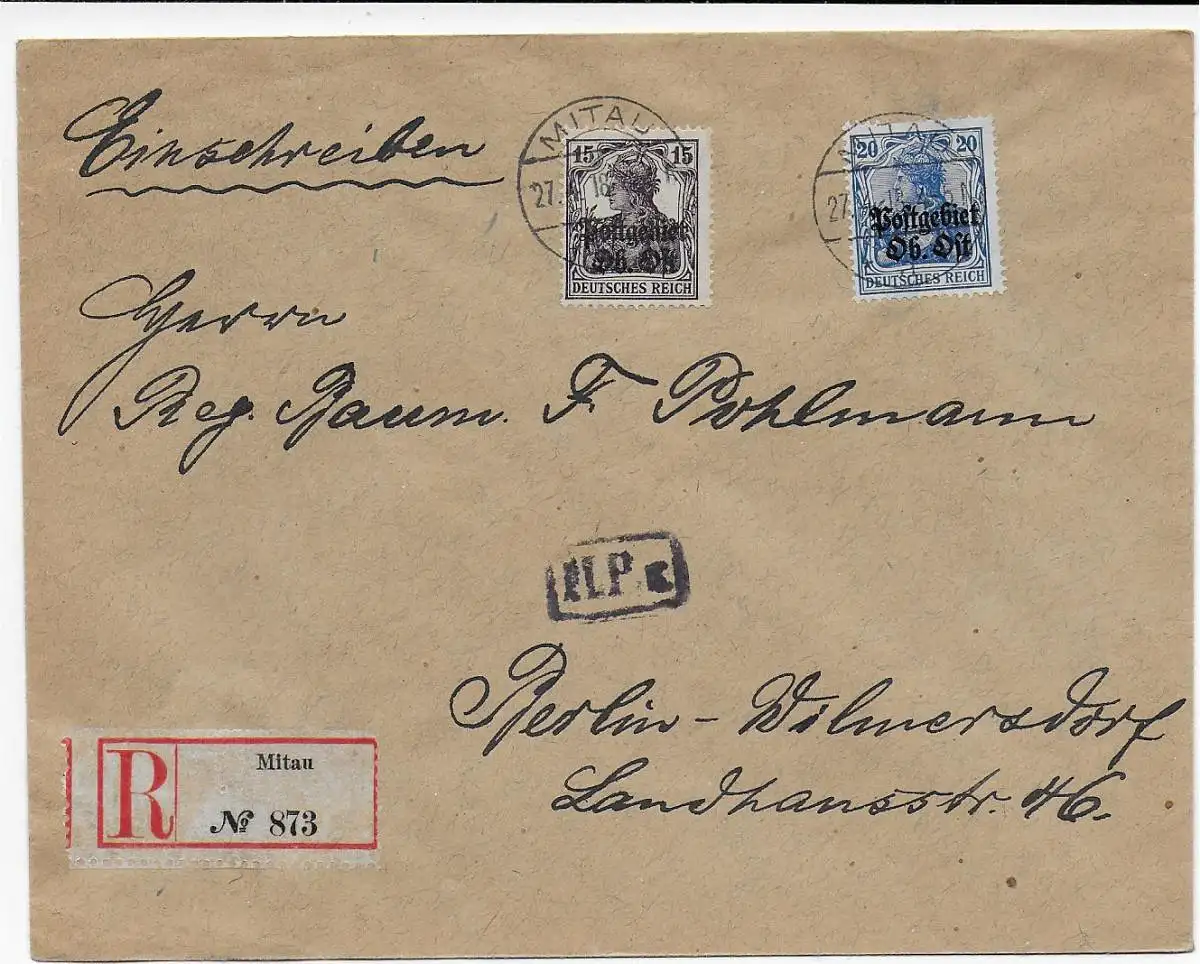 Einschreiben
MITAU
27. 18
15 15
Postgebiet
Ob. Ost
DEUTSCHES REICH
MITAU
27.
20 20
Postgebiet
Ob. Ost
DEUTSCHES REICH
Herrn
Reg. Baum. F. Pohlmann
Berlin - Wilmersdorf
Landhausstr. 46.
R
Mitau
№ 873